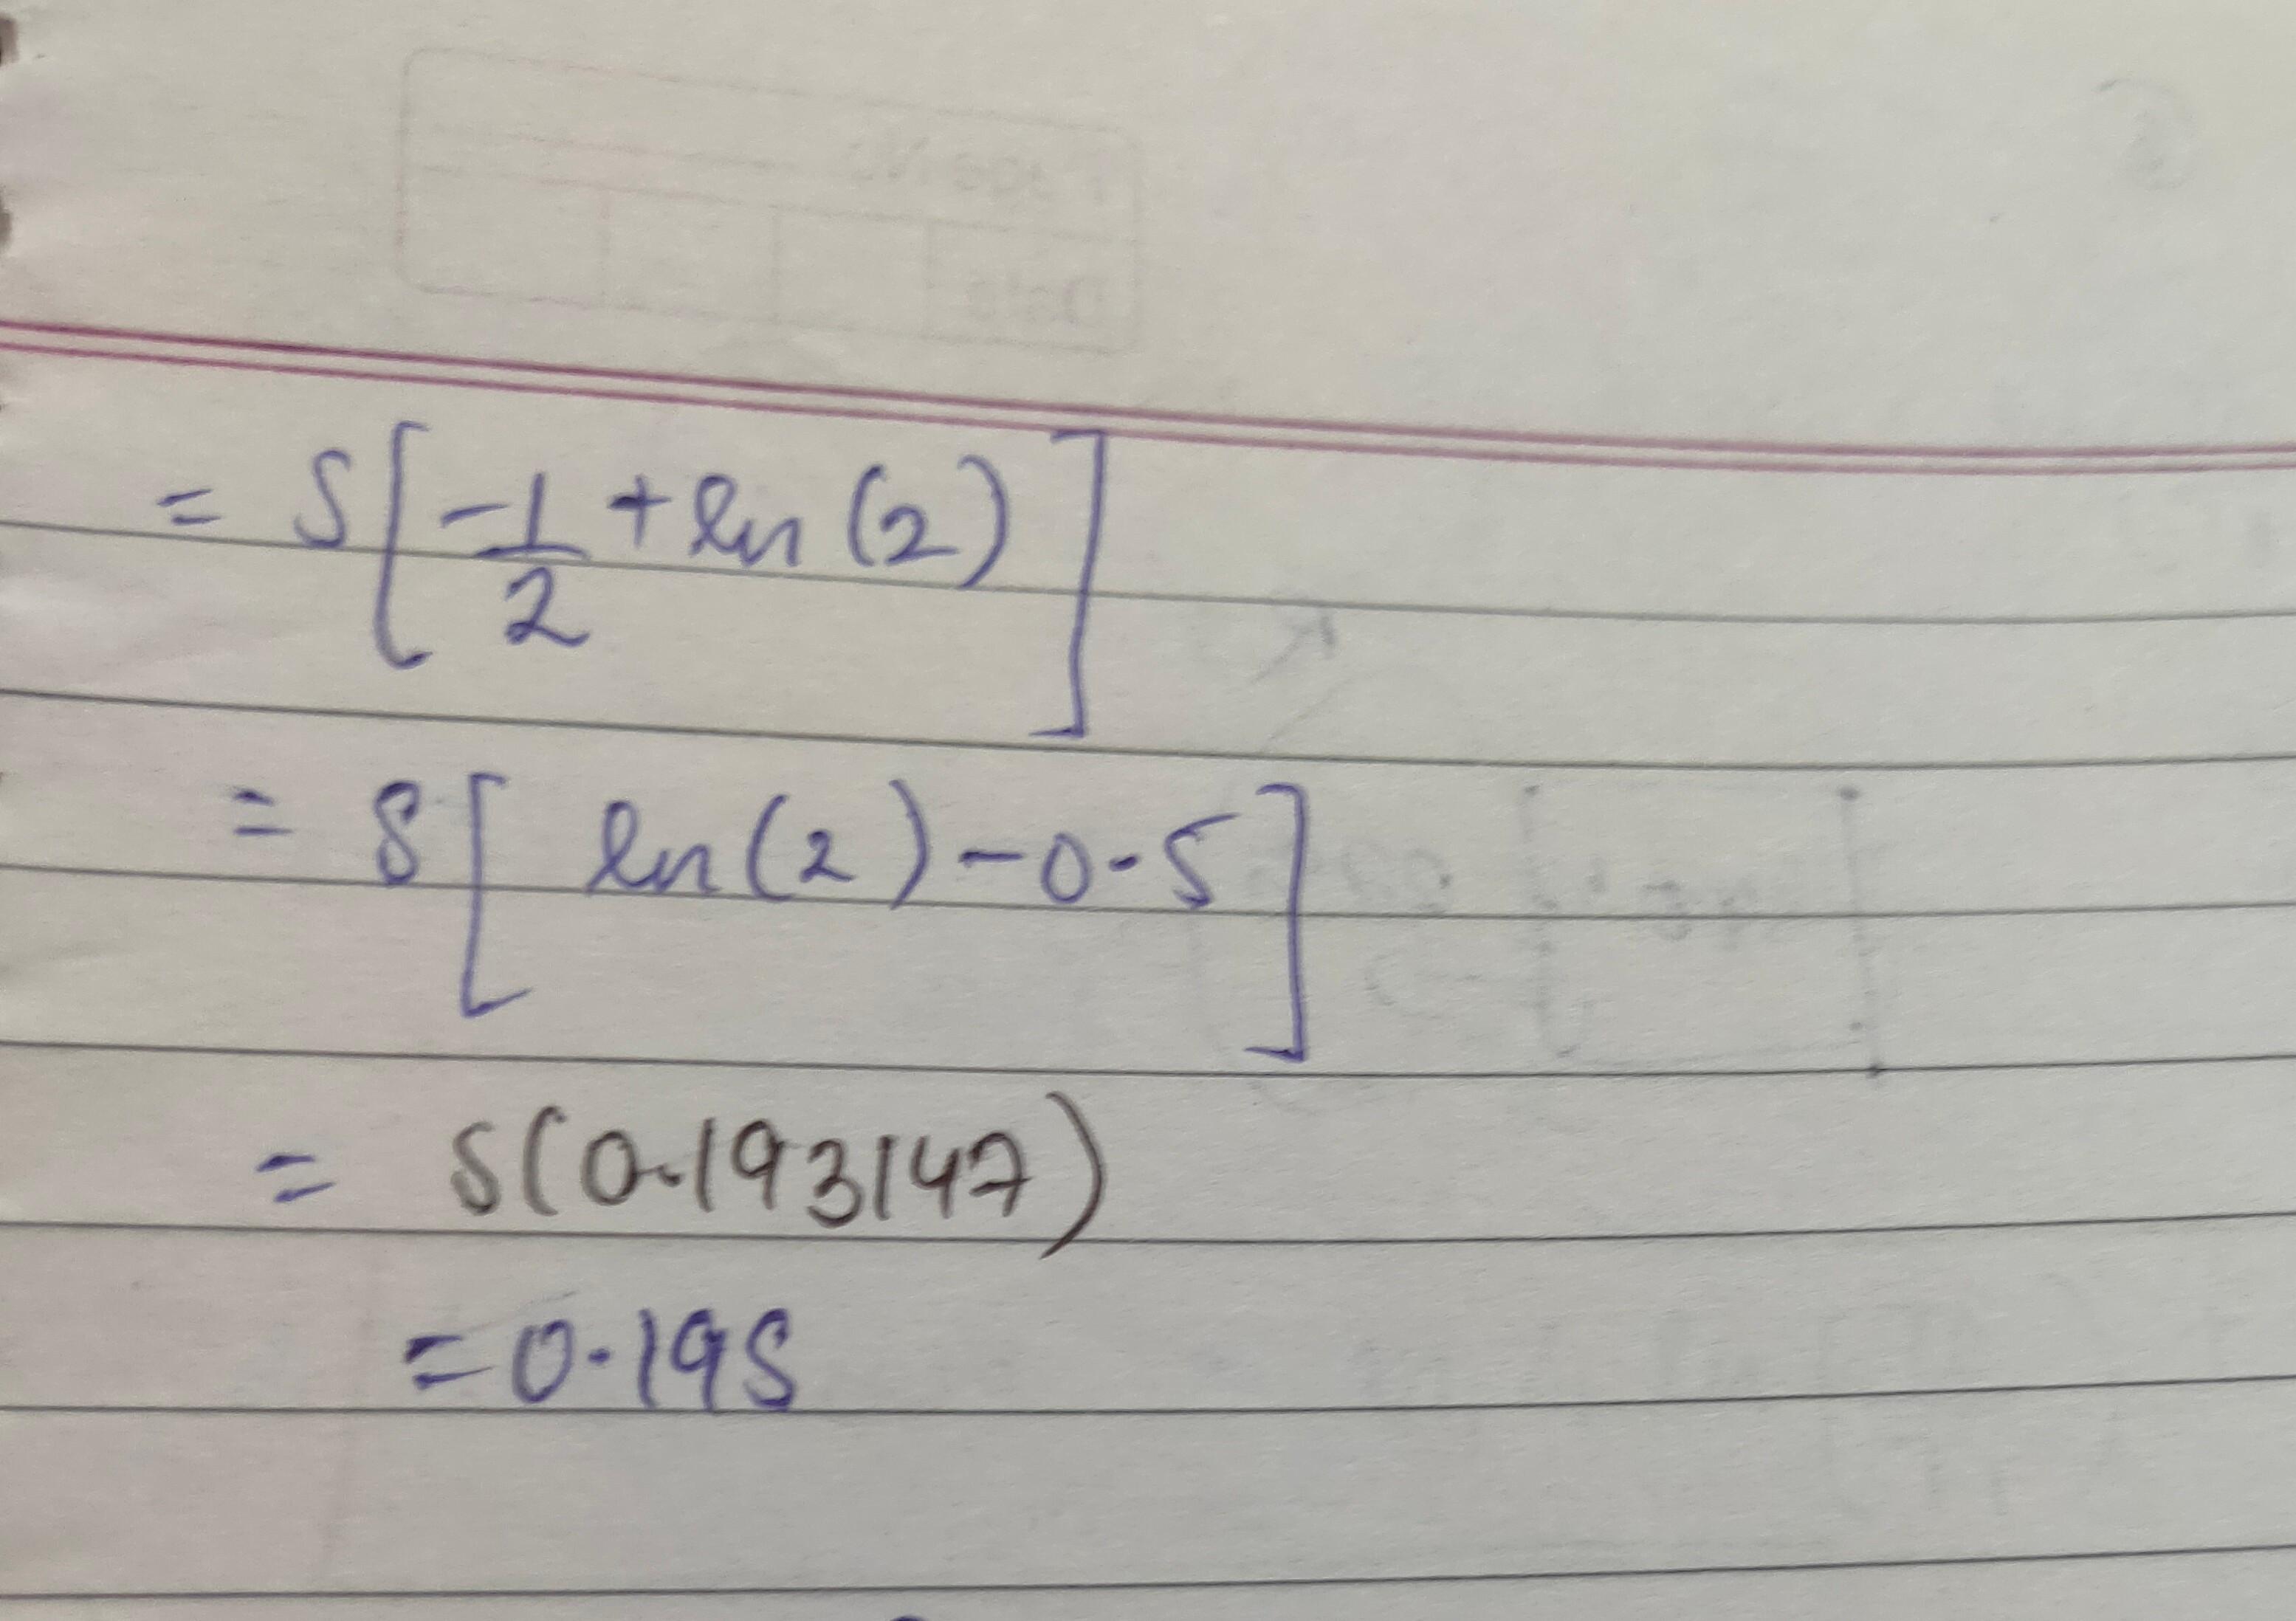 = S[-1/2 + ln(2)]
= S[ln(2) - 0.5]
= S(0.193147)
= 0.19S